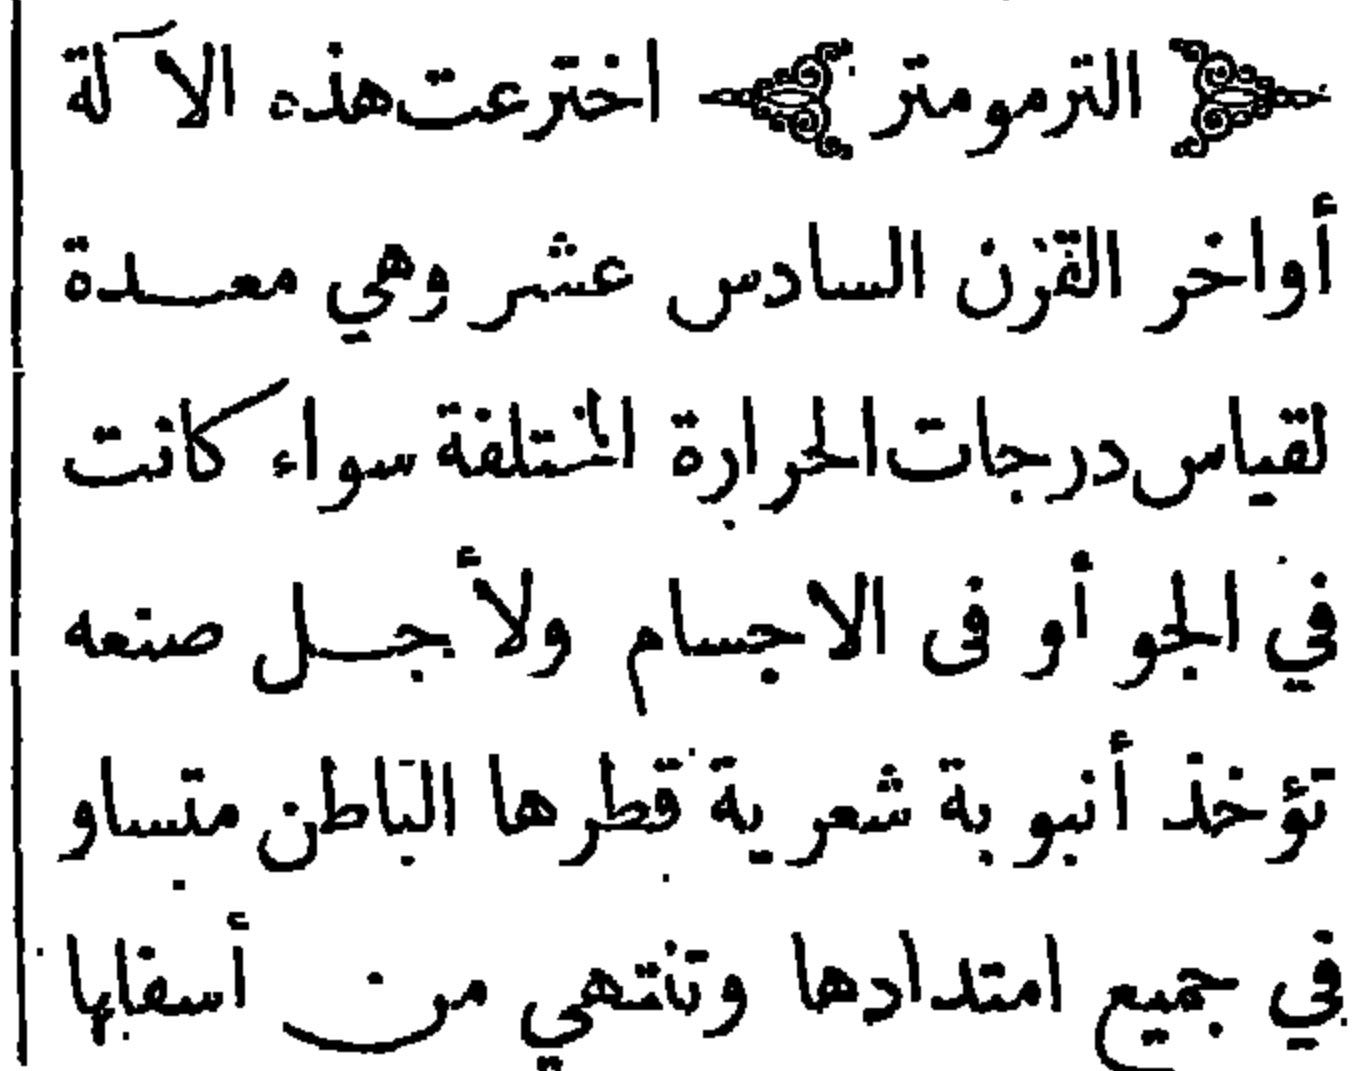 ﴿ الترمومتر ﴾ اخترعت هذه الآلة
أواخر القرن السادس عشر وهي معدة
لقياس درجات الحرارة المختلفة سواء كانت
في الجو أو فى الاجسام ولأجل صنعه
تؤخذ أنبوبة شعرية قطرها الباطن متساو
في جميع امتدادها وتنتهي من أسفلها